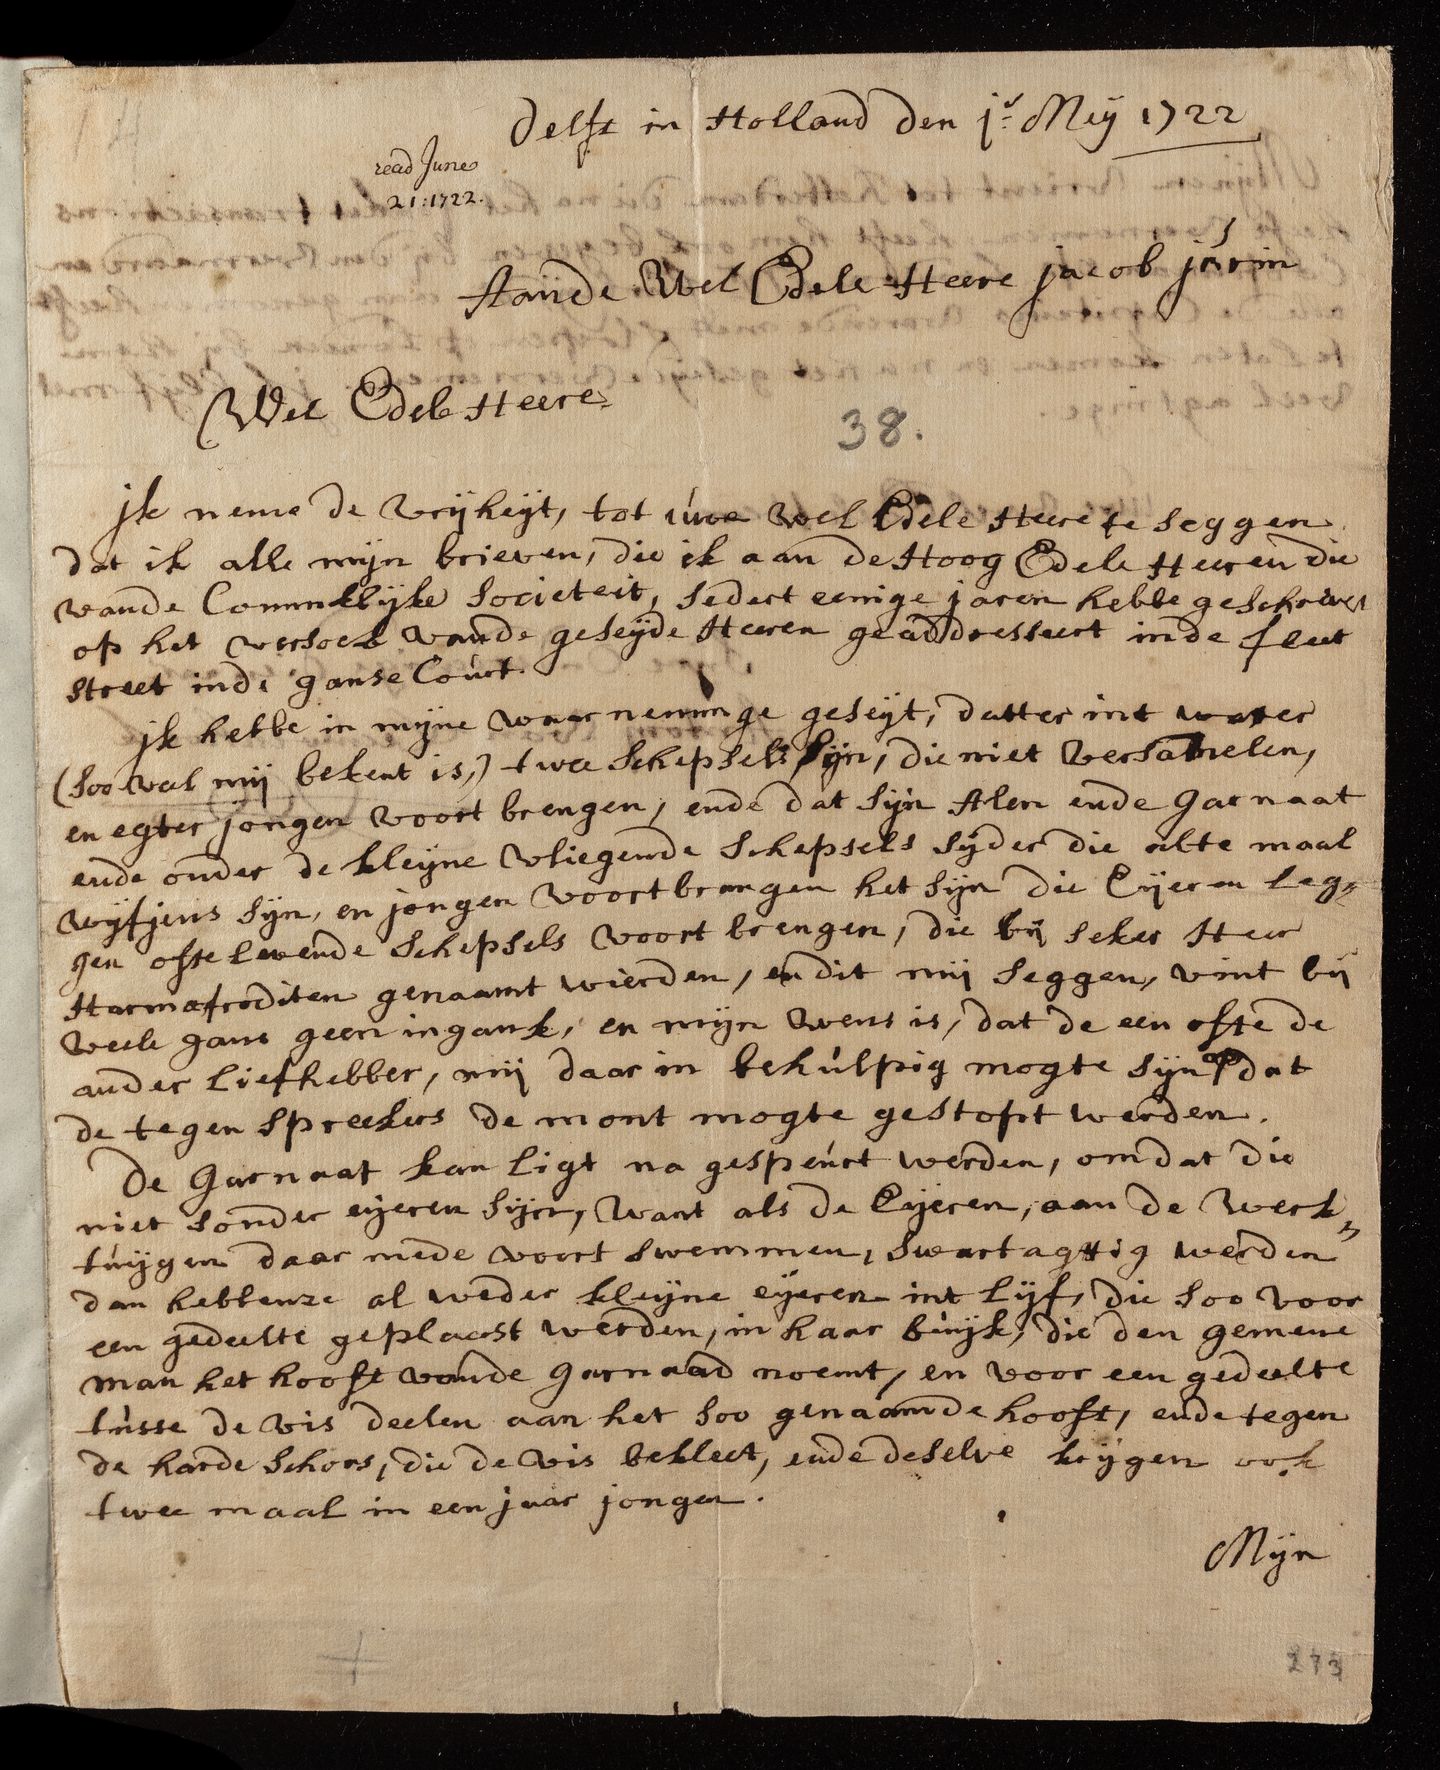 Delft in Holland den 1e Meij 1722
read June
21:1722.
Aande Wel Edele Heere jacob júrin
Wel Edele Heere.
38.
jk neme de vrijheijt, tot úwe Wel Edele Heere te seggen
dat ik alle mijn brieven, die ik aan de Hoog Edele Heeren die
vande Connnklijke Societeit, sedert eenige jaren hebbe geschreven
op het versoek vande geseijde Heeren geaddresseert inde fleet
street inde ganse Coúrt.
jk hebbe in mijne waarneminge geseijt, datter int water
(soo veel mij bekent is,) twee schepsels sijn, die niet versamelen,
en egter jongen voort brengen, ende dat sijn Alen ende garnaat
ende onder de kleijne vliegende schepsels sijder die alte maal
wijfjens sijn, en jongen voortbrengen het sijn die Eijeren leg=
gen ofte levende schepsels voort brengen, die bij seker Heer
Harmafroditen genaamt wierden, en dit mij seggen, vint bij
veele gans geen ingank, en mijn wens is, dat de een ofte de
ander liefhebber, mij daar in behúlpig mogte sijn op dat
de tegen spreekers de mont mogte gestopt werden.
De garnaat kan ligt na gespeúrt werden, omdat die
niet sonder eijeren sijn, want als de Eijeren, aan de werk=
túijgen daar mede voort swemmen, swartagtig werden
dan hebbenze al weder kleijne eijeren int lijf, die soo voor
een gedeelte geplaast werden, in haar búijk, die den gemene
man het hooft vande garnaad noemt, en voor een gedeelte
tússe de vis deelen aan het soo genaamde hooft, ende tegen
de harde schors, die de vis bekleet, ende deselve krijgen ook
twee maal in een jaar jongen.
Mijn
273